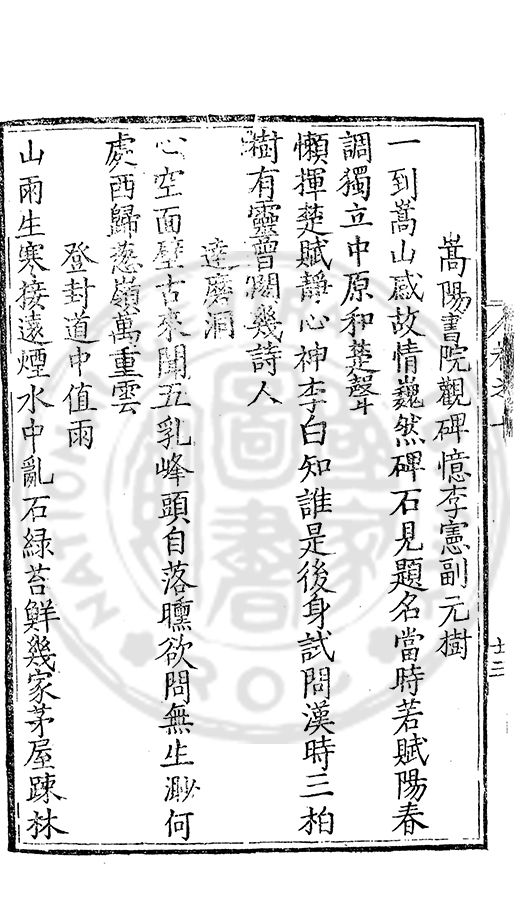 嵩陽書院觀碑憶李憲副元樹
一到嵩山感故情巍然碑石見題名當時若賦陽春
調獨立中原和楚聲
懶揮楚賦靜心神李白知誰是後身試問漢時三柏
樹有靈曾閱幾詩人
達磨洞
心空面壁古來聞五乳峰頭自落曛欲問無生渺何
處西歸葱嶺萬重雲
登封道中值雨
山雨生寒接遠煙水中亂石綠苔鮮幾家茅屋踈林
十二
NATION
ROC